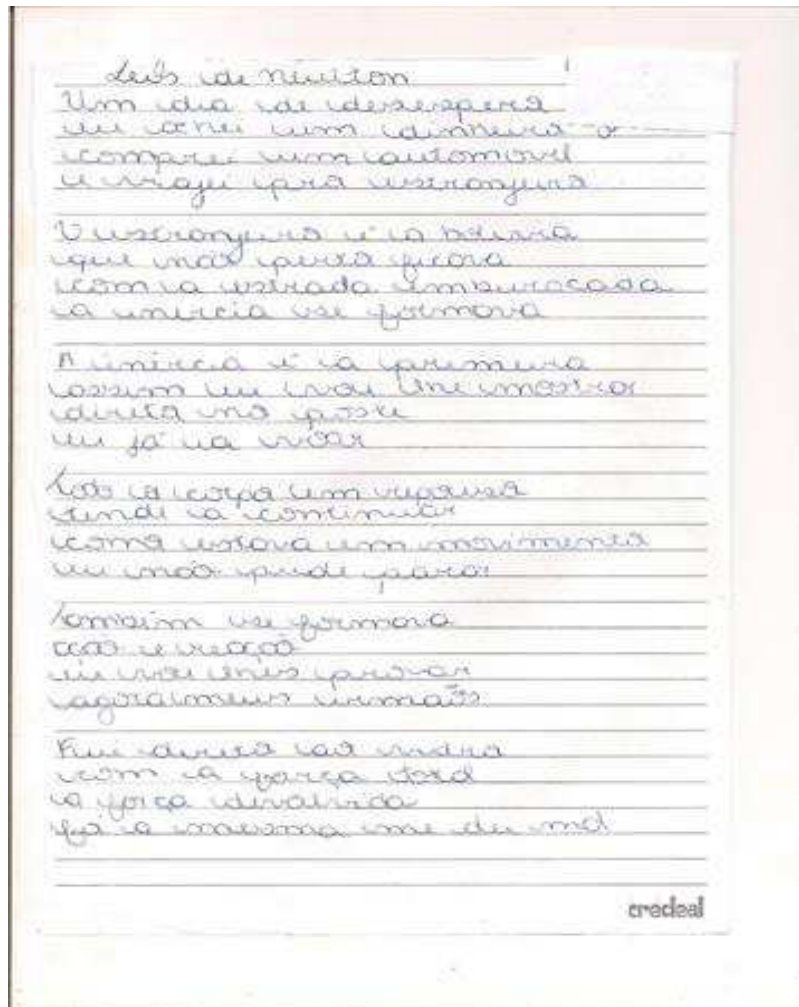 Leis de Newton
Um dia de desespero
eu achei um dinheiro
comprei um automovel
e viajei pro estrangeiro
O estrangeiro é a
que não
com a estrada emburacada
a inercia se formava
A inércia é a primeira
assim eu vou lhe mostrar
direto no poste
eu já ia voar
Todo corpo em repouso
tende a continuar
como estava em movimento
eu não pude parar
Também se formava
ação e reação
eu vou lhes provar
agora meus irmãos
Fui direto ao vidro
com a força total
a força devolvida
foi a mesma me deu mal
credeal